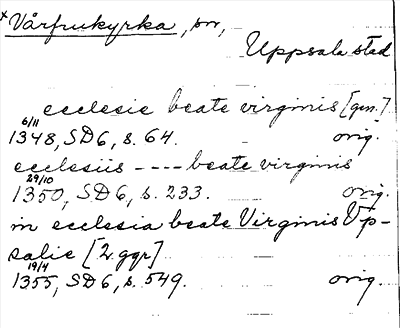 x Vårfrukyrka, sn,
Uppsala stad
ecclesie beate virginis [gen.]
6/11
1348, SD6, s. 64. orig.
ecclesiis ---- beate virginis
29/10
1350, SD6, s. 233. orig.
in ecclesia beate Virginis Vp-
salie [2 ggr]
19/4
1355, SD6, s. 549. orig.